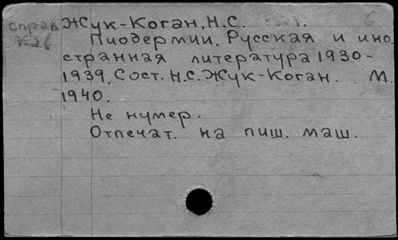 справ
К26
Жук-Коган, Н.С.
Пиодермии. Русская и ино
странная литература 1930-
1939. Сост. Н.С. Жук-Коган. М.
1940.
Не нумер.
Отпечат. на пиш. маш.